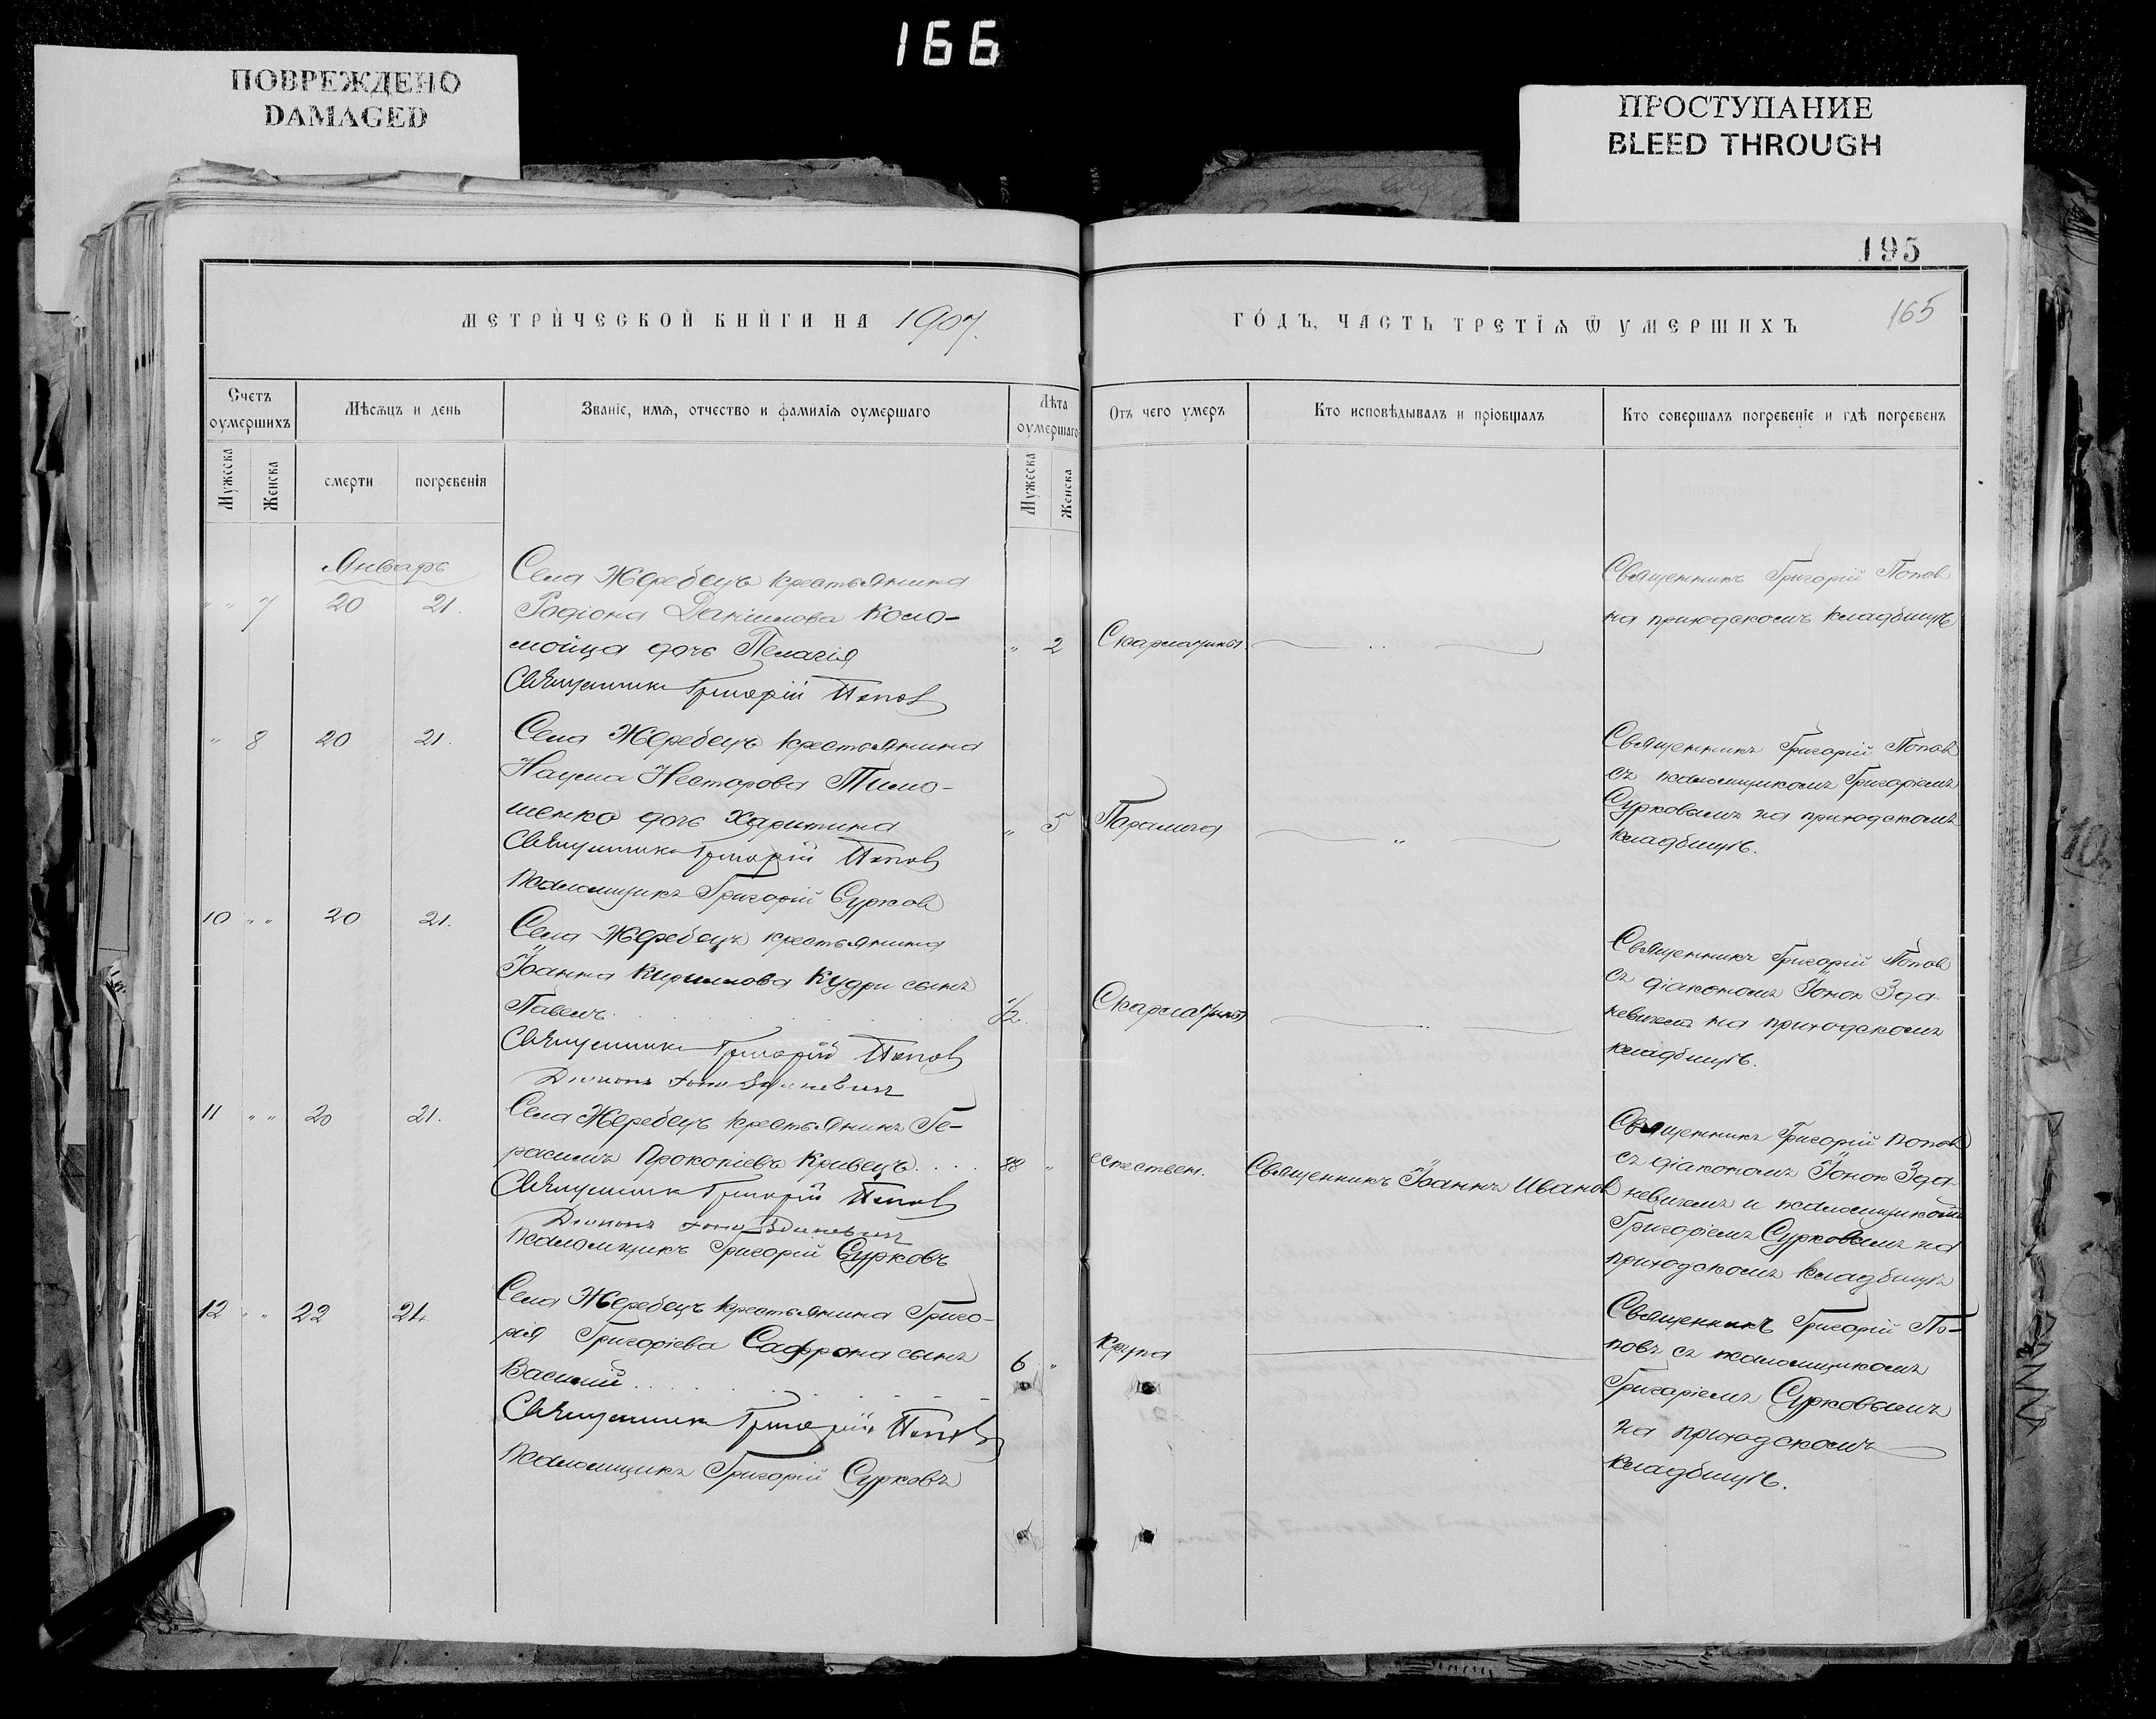 166
ПОВРЕЖДЕНО
DAMAGED
ПРОСТУПАНИЕ
BLEED THROUGH
195
165
МЕТРИ́ЧЕСКОЙ КНИ́ГИ НА 1907.
ГО́ДЪ, ЧАСТЬ ТРЕТІѦ Ѿ УМЕРШИХЪ
Счетъ оумершихъ
Мѣсѧцъ и день
Званіе, имѧ, отчество и фамиліѧ оумершаго
Лѣта оумершаго
Отъ чего умеръ
Кто исповѣдывалъ и пріобщалъ
Кто совершалъ погребеніе и гдѣ погребенъ
Мужеска
Женска
смерти
погребенія
Мужеска
Женска
Январь
" " 7 20 21.
Села Жеребецъ крестьянина
Родіона Даніилова Коло-
мойца дочь Пелагія
" 2
Скарлатины
Священникъ Григорій Попов
на приходскомъ кладбищѣ
Священникъ Григорій Попов
" 8 20 21.
Села Жеребецъ крестьянина
Наума Несторова Тимо-
шенко дочь Харитина
" 5
Паралича
"
Священникъ Григорій Попов
съ псаломщикомъ Григоріемъ
Сурковымъ на приходскомъ
кладбищѣ.
Священникъ Григорій Попов
Псаломщикъ Григорій Сурков
10 " " 20 21.
Села Жеребецъ крестьянина
Іоанна Кириллова Кудри сынъ
Павелъ
1/2.
Скарлатины
Священникъ Григорій Попов
съ діакономъ Іоною Зда-
невичемъ на приходскомъ
кладбищѣ.
Священникъ Григорій Попов
Діаконъ Іона Зданевичъ
11 " " 20 21.
Села Жеребецъ крестьянинъ Ге-
расимъ Прокопіевъ Кривецъ
88 "
естествен.
Священникъ Іоаннъ Иванов
Священникъ Григорій Попов
съ діакономъ Іоною Зда-
невичемъ и псаломщикомъ
Григоріемъ Сурковымъ на
приходскомъ кладбищѣ
Священникъ Григорій Попов
Діаконъ Іона Зданевичъ
Псаломщикъ Григорій Сурковъ
12 " " 22 24.
Села Жеребецъ крестьянина Григо-
рія Григоріева Сафрона сынъ
Василій
6 "
Крупа
Священникъ Григорій По-
повъ съ псаломщикомъ
Григоріемъ Сурковымъ
на приходскомъ
кладбищѣ.
Священникъ Григорій Попов
Псаломщикъ Григорій Сурковъ